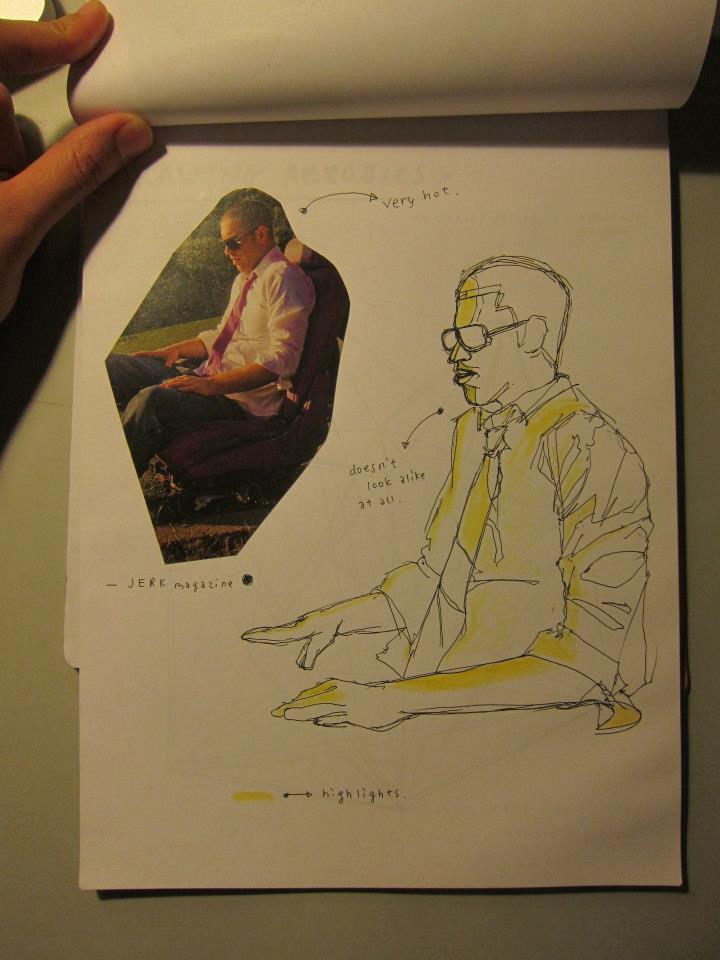 very hot.
doesn't
look alike
at all.
— JERK magazine
highlights.